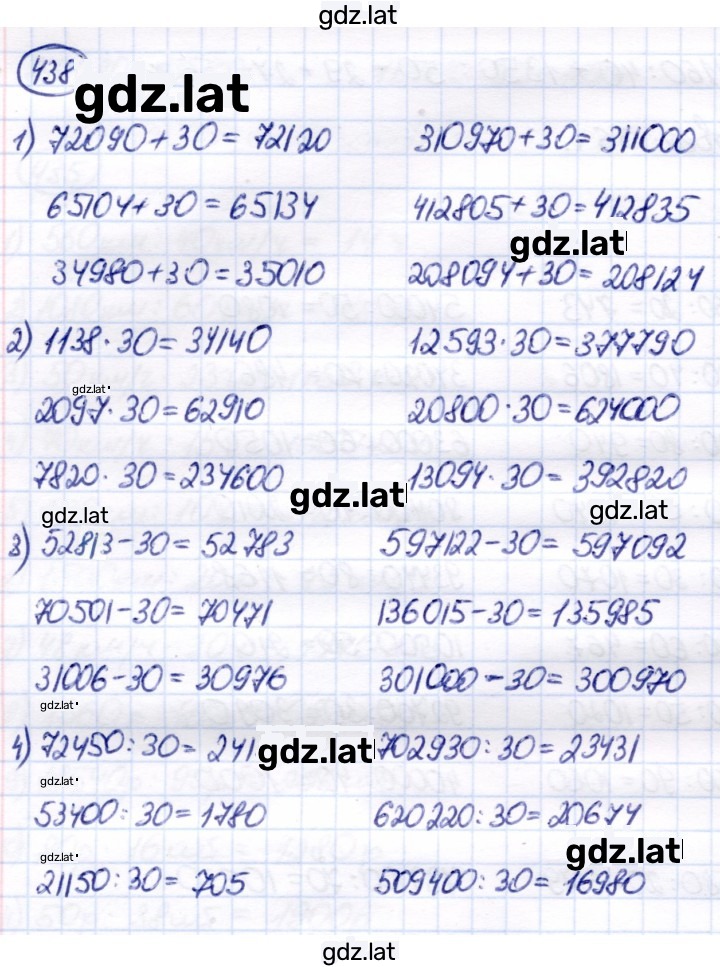 gdz.lat
438
gdz.lat
1) 72090+30= 72120 310970+30= 311000
65104+30=65134 412805+30=412835
gdz.lat
34980+30=35010 208094+30= 208124
2) 1138·30= 34140 12593·30=377790
gdz.lat
2097·30=62910 20800·30=624000
7820·30=234600 13094·30= 392820
gdz.lat
gdz.lat gdz.lat
3) 52813-30= 52783 597122-30= 597092
70501-30= 70471 136015-30= 135985
31006-30= 30976 301000-30= 300970
gdz.lat
4) 72450:30= 241 gdz.lat 702930:30= 23431
gdz.lat
53400:30=1780 620220:30= 20674
gdz.lat gdz.lat
21150:30= 705 509400:30= 16980
gdz.lat